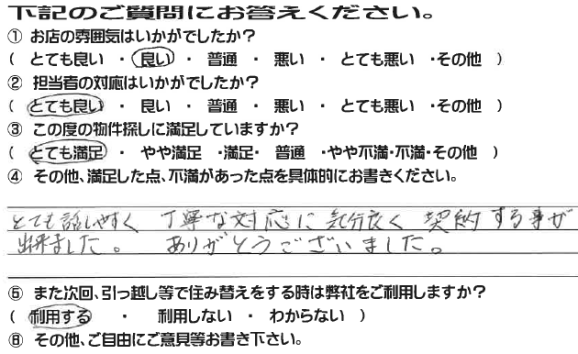 下記のご質問にお答えください。
① お店の雰囲気はいかがでしたか？
（ とても良い ・ 良い ・ 普通 ・ 悪い ・ とても悪い ・その他 ）
② 担当者の対応はいかがでしたか？
（ とても良い ・ 良い ・ 普通 ・ 悪い ・ とても悪い ・その他 ）
③ この度の物件探しに満足していますか？
（ とても満足 ・ やや満足 ・満足・ 普通 ・やや不満・不満・その他 ）
④ その他、満足した点、不満があった点を具体的にお書きください。
とても話しやすく 丁寧な対応に気分良く 契約する事が
出来ました。 ありがとうございました。
⑤ また次回、引っ越し等で住み替えをする時は弊社をご利用しますか？
（ 利用する ・ 利用しない ・ わからない ）
⑥ その他、ご自由にご意見等お書き下さい。